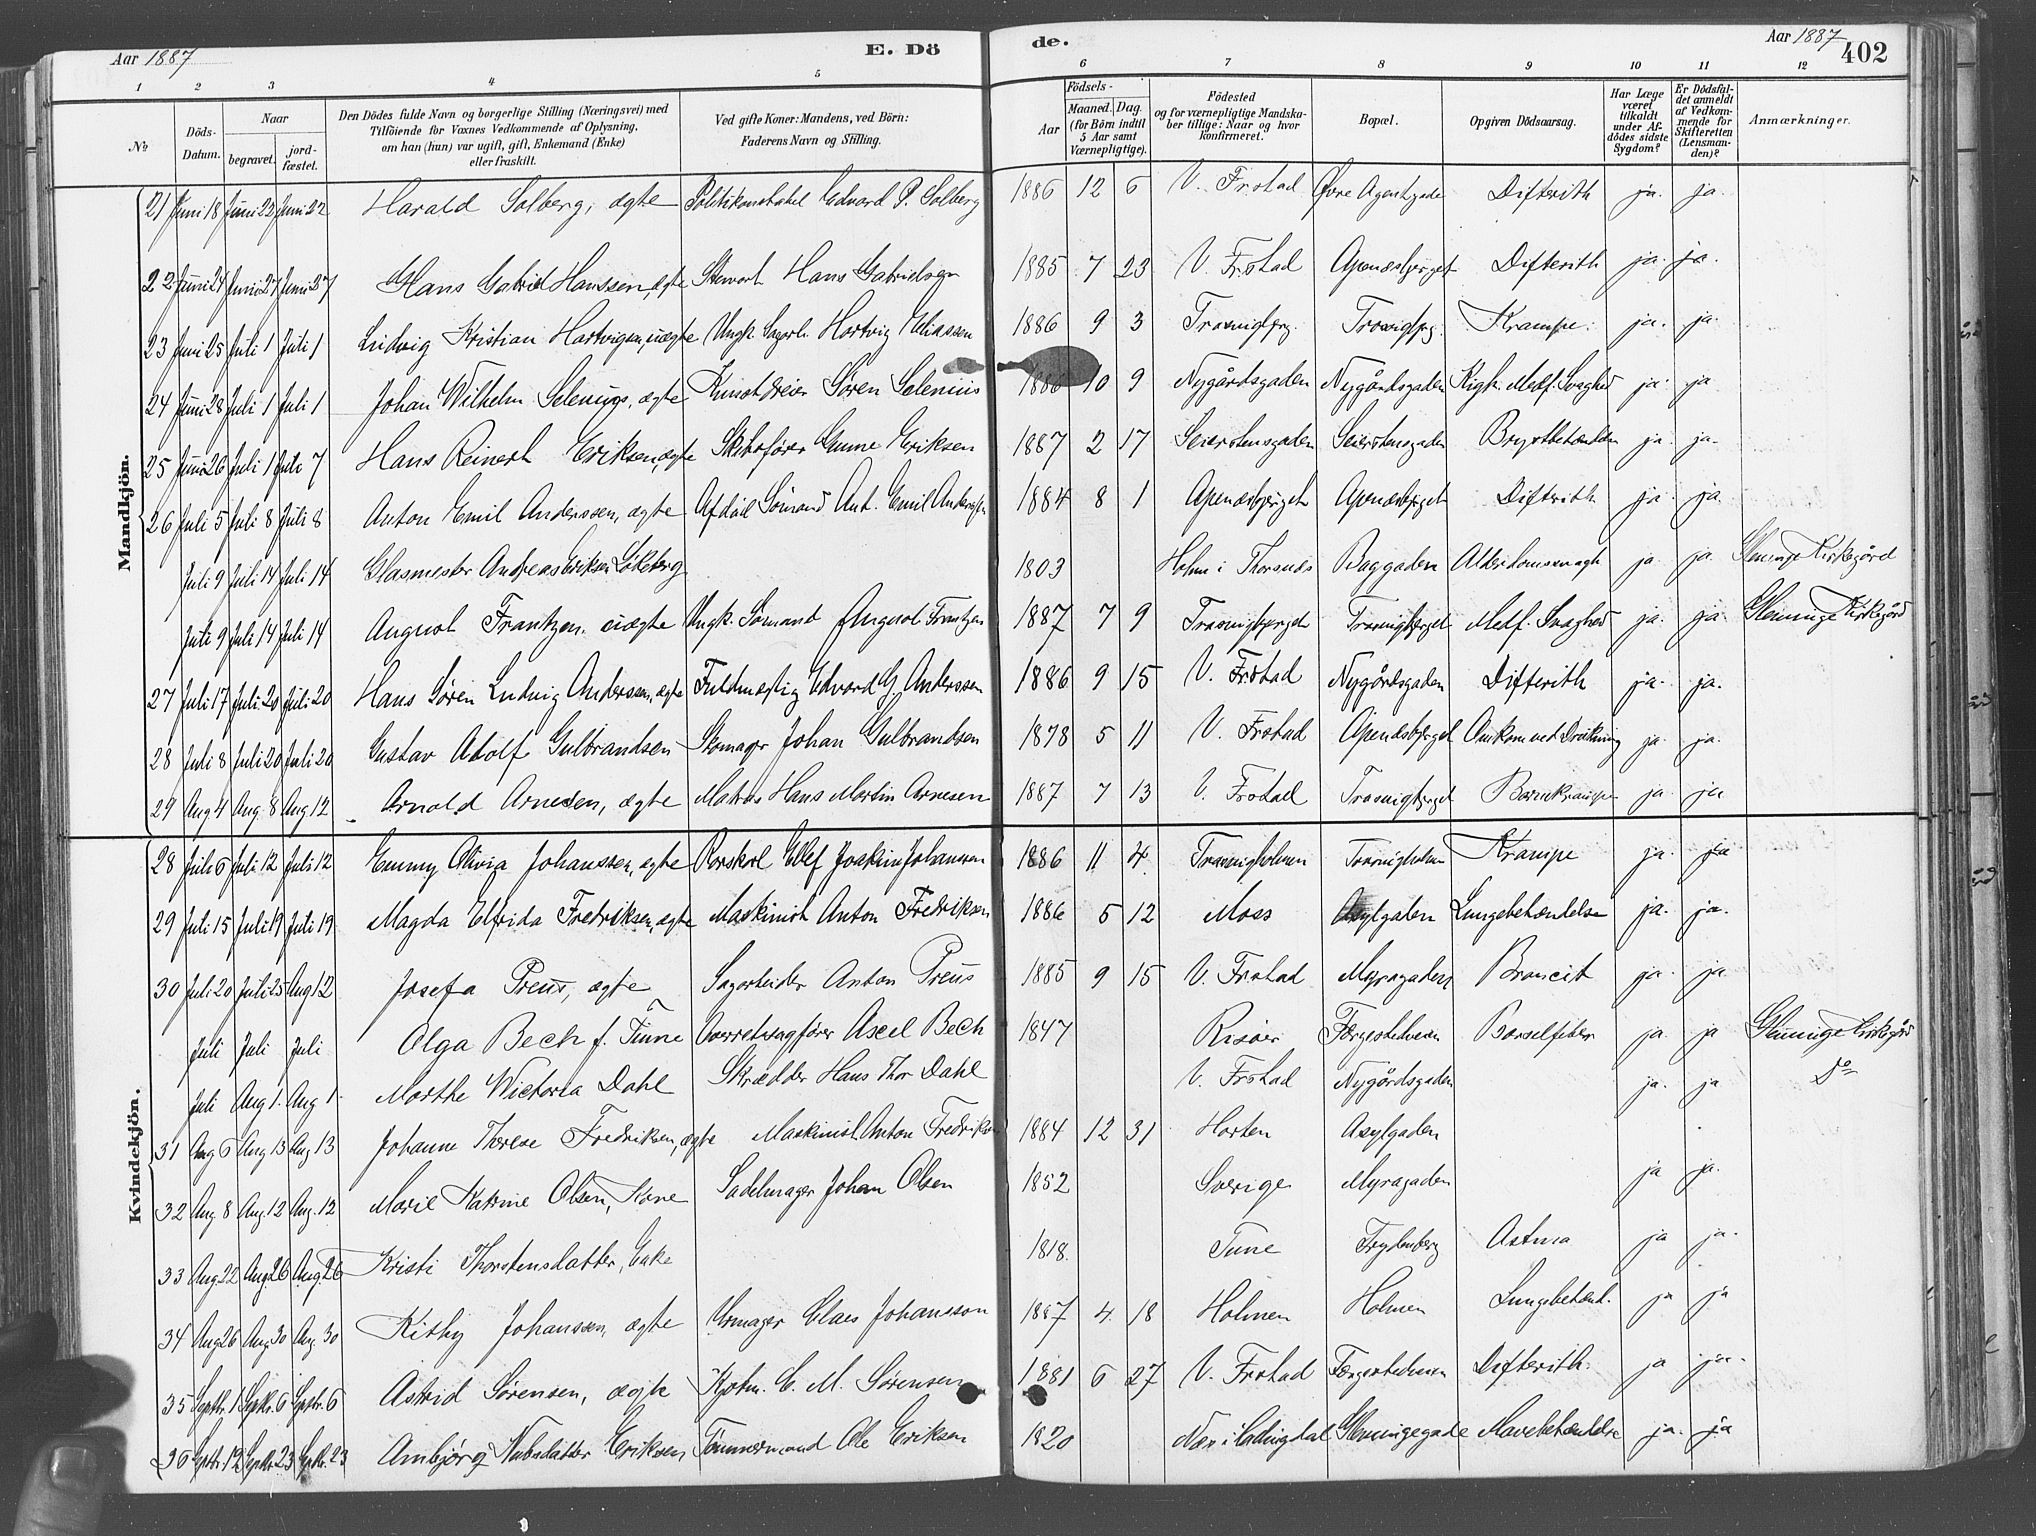 Aar 1887 E. Dö de. Aar 1887 402
1 2 3 4 5 6 7 8 9 10 11 12
No Döds-Datum. Naar begravet. jord-fæstet. Den Dödes fulde Navn og borgerlige Stilling (Næringsvei) med Tilföiende for Voxnes Vedkommende af Oplysning, om han (hun) var ugift, gift, Enkemand (Enke) eller fraskilt. Ved gifte Koner: Mandens, ved Börn: Faderens Navn og Stilling. Aar Födsels- Maaned. Dag. (for Börn indtil 5 Aar samt Værnepligtige). Födested og for værnepligtige Mandskaber tillige: Naar og hvor konfirmeret. Bopæl. Opgiven Dödsaarsag. Har Læge været tilkaldt under Afdödes sidste Sygdom? Er Dödsfaldet anmeldt af Vedkommende for Skifteretten (Lensmanden)? Anmærkninger.
Mandkjön.
21 Juni 18 Juni 22 Juni 22 Harald Solberg, ægte Politikonstabel Edvard P. Solberg 1886 12 6 V. Frstad Øvre Agentgade Difterith ja. ja.
22 Juni 24 Juni 27 Juni 27 Hans Gabriel Hanssen, ægte Stewart Hans Gabrielsen 1885 7 23 V. Frstad Apenæsbjerget Difterith ja. ja.
23 Juni 25 Juli 1 Juli 1 Ludvig Kristian Hartvigsen, uægte Ungk. Sagarb. Hartvig Eliassen 1886 9 3 Trosvigbjrg. Trosvigbjrg. Krampe. ja. ja.
24 Juni 28 Juli 1 Juli 1 Johan Wilhelm Selenius, ægte Kunstdreier Søren Selenius 1886 10 9 Nygårdsgaden Nygårdsgaden Kigh. Medf. Svaghed ja. ja
25 Juni 26 Juli 1 Juli 7 Hans Reinert Eriksen, ægte Skibsfører Gunne Eriksen 1887 2 17 Seierstensgaden Seierstensgaden Brystbetændelse ja. ja.
26 Juli 5 Juli 8 Juli 8 Anton Emil Anderssen, ægte Afdød Sømand Ant. Emil Anderssen 1884 8 1 Apenæsbjrget Apenæsbjrget Difterith ja. ja.
Juli 9 Juli 14 Juli 14 Glasmester Andreas Eriksen Løkeberg 1803 Holm i Thorsnæs Baggaden Alderdomssvagh ja. ja. Glemminge Kirkegård
Juli 9 Juli 14 Juli 14 August Frantzen, uægte Ungk. Sømand August Frantzen 1887 7 9 Trosvigbjerget Trosvigbjerget Medf. Svaghed ja. ja Glemminge Kirkegård
27 Juli 17 Juli 20 Juli 20 Hans Søren Ludvig Andersen, ægte Fuldmægtig Edvard G. Anderssen 1886 9 15 V. Frstad Nygårdsgaden Difterith ja. ja.
28 Juli 8 Juli 20 Juli 20 Gustav Adolf Gulbrandsen Skomager Johan Gulbrandsen 1878 5 11 V. Frstad Apenæsbjerget Omkom ved Drukning ja. ja.
29 Aug 4 Aug. 8 Aug 12 Arnold Arnesen, ægte Matros Hans Martin Arnesen 1887 7 13 V. Frstad Trosvigbjerget Barnekrampe ja. ja
Kvindekjön.
28 Juli 6 Juli 12 Juli 12 Emmy Olivia Johanssen, ægte Ellef Joakim Johanssen 1886 11 4. Trosvigholmen Trosvigholmen Krampe ja. ja
29 Juli 15 Juli 19 Juli 19 Magda Elfrida Fredriksen, ægte Maskinist Anton Fredriksen 1886 5 12 Moss Asylgaden Lungebetændelse ja. ja.
30 Juli 20 Juli 25 Aug 12 Josefa Preus, ægte Sagarbeider Anton Preus 1885 9 15 V. Frstad Myragaden Broncit ja. ja
Juli Juli Juli Olga Bech f. Finne Overretssagfører Axel Bech 1847 Risøer Færgestedsveien Barselfeber ja ja Glemminge Kirkegård
Juli Aug 1. Aug 1. Marthe Victoria Dahl Skrædder Hans Thor Dahl V. Frstad Nygårdsgaden ja. ja Do
31 Aug 6 Aug 13 Aug 13 Johanne Therese Fredriksen, ægte Maskinist Anton Fredriksen 1884 12 31 Horten Asylgaden
32 Aug 8 Aug. 12 Aug. 12 Marie Katrine Olsen, Kone Sadelmager Johan Olsen 1852 Sverige Myragaden ja ja.
33 Aug 22 Aug. 26 Aug. 26 Kristi Thorstensdatter, Enke 1818. Tune Frydenberg Astma ja ja.
34 Aug 26 Aug 30 Aug. 30 Kithy Johanssen, ægte Urmager Claes Johansson 1887 4. 18 Holmen Holmen Lungebetænd. ja ja
35 Septbr. 1 Septr. 6 Septr. 6 Astrid Sørensen, ægte Kjøbm. C. M. Sørensen 1881 6 27 V. Frstad Færgestedsveien Difterith. ja ja.
36 Septr. 19 Septr. 23 Septr. 23 Ambjørg Nubsdatter Eriksen, Tømmermand Ole Eriksen 1820 Næs i Hallingdal Glemmigegade Mavebetændelse ja. ja